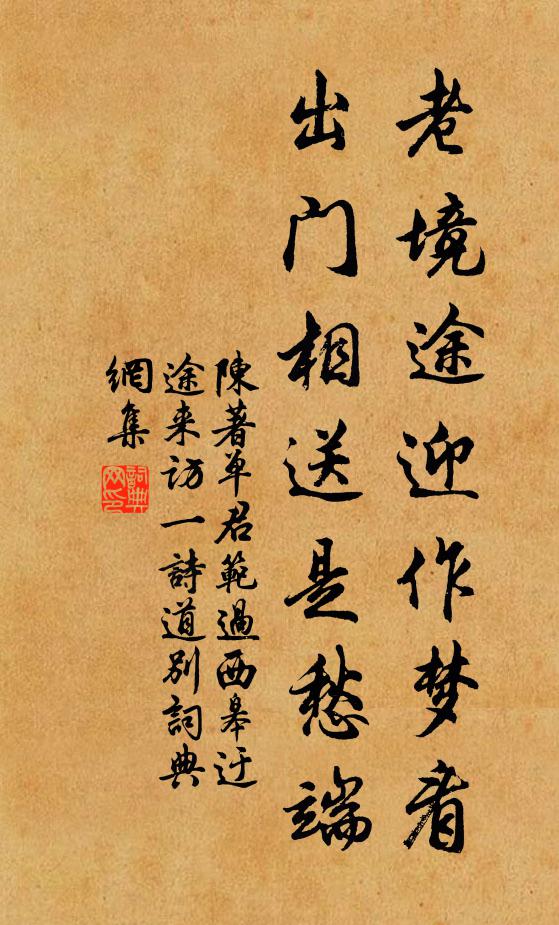 老境途迎作梦看
出门相送是愁端
陳著单君範過西皋迂
途来访一詩道别詞典
網集
詞典
网印